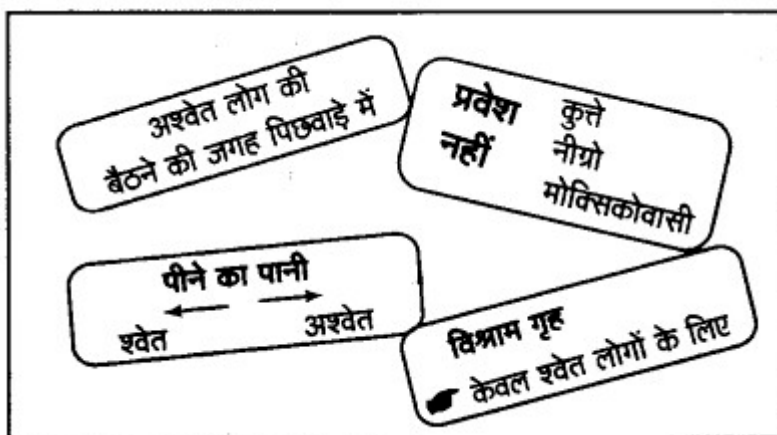 अश्वेत लोग की
बैठने की जगह पिछवाड़े में
प्रवेश कुत्ते
नहीं नीग्रो
मोक्सिकोवासी
पीने का पानी
श्वेत अश्वेत
विश्राम गृह
केवल श्वेत लोगों के लिए